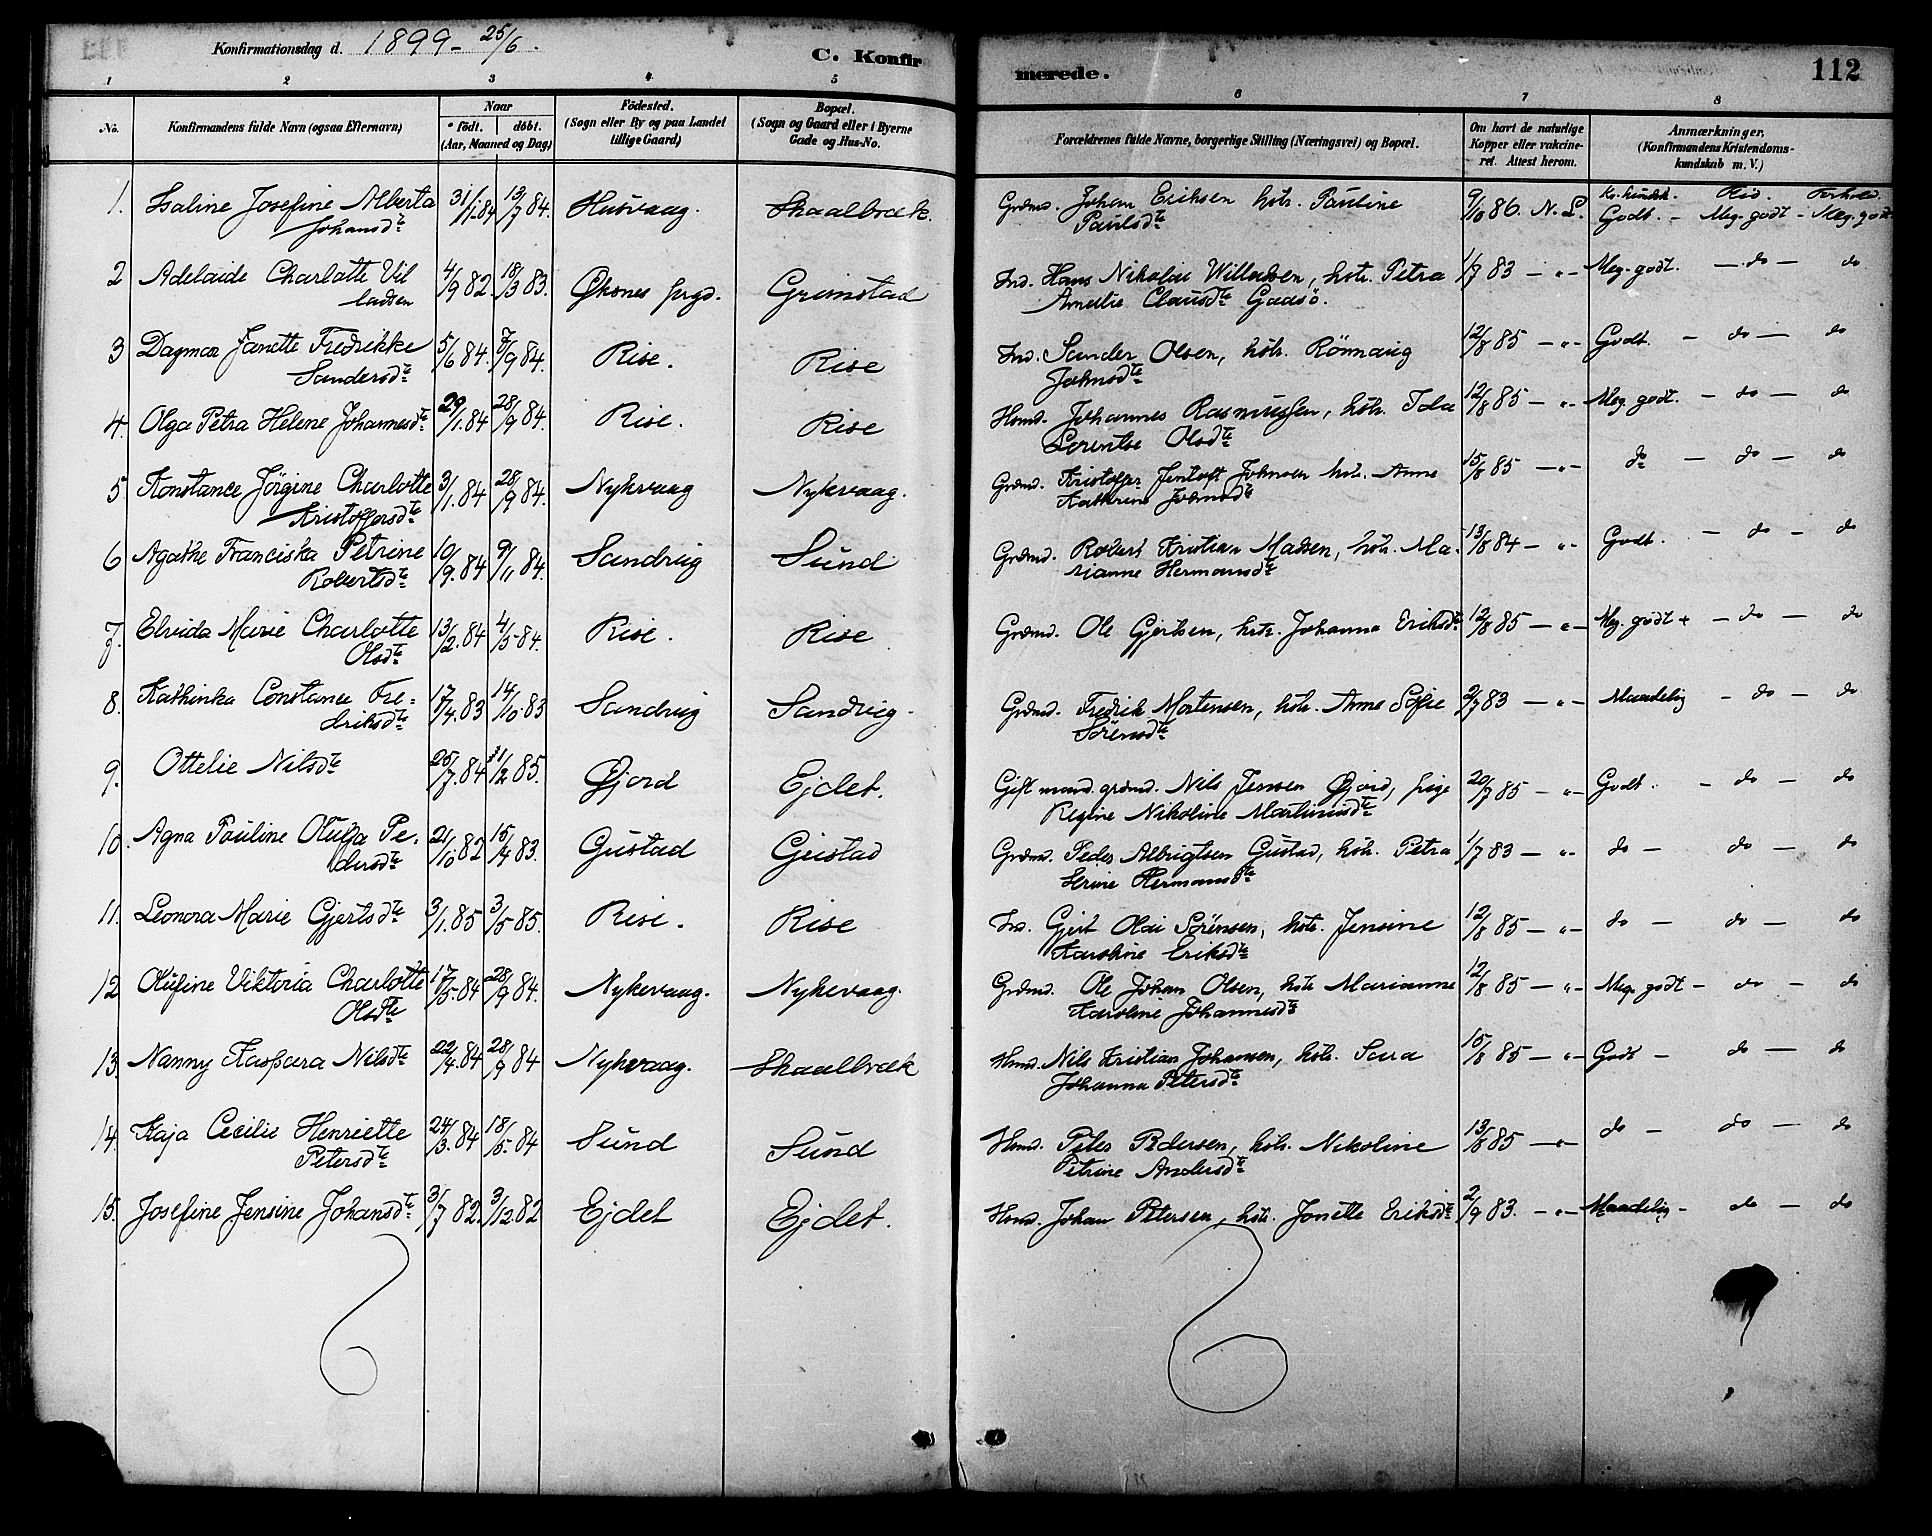 Konfirmationsdag d. 1899 - 25/6.
C. Konfirmerede.
112
1 2 3 4 5 6 7 8
No.
Konfirmandens fulde Navn (ogsaa Efternavn)
Naar
født. døbt.
(Aar, Maaned og Dag)
Födested.
(Sogn eller By og paa Landet
tillige Gaard)
Bopæl.
(Sogn og Gaard eller i Byerne
Gade og Hus-No.
Forældrenes fulde Navne, borgerlige Stilling (Næringsvei) og Bopæl.
Om havt de naturlige
Kopper eller vakcine-
ret. Attest herom.
Anmærkninger.
(Konfirmandens Kristendoms-
kundskab m. V.)
Kr. kundsk. Flid. Forhold.
1. Isaline Josefine Alberta 31/1 84 13/7 84. Husvaag. Skaalbræk. Grdmd. Johan Eriksen hstr. Pauline 9/10 86. N. L. Godt. - Meg. godt - Meg. godt
Johansdtr Paulsdtr
2 Adelaide Charlotte Vil 4/9 82 18/3 83. Øksnes prgd. Grimstad Ind. Hans Nikolai Willadsen, hstr. Petra 1/7 83 - " - Meg. godt. - do - do
ladsen Amalie Clausdtr Gaasö.
3 Dagmar Janette Fredrikke 5/6 84. 7/9 84. Rise. Rise Ind. Sander Olsen, hstr. Rönnaug 12/8 85 - " - Godt. - do - do
Sandersdtr Johnsdtr
4. Olga Petra Helene Johannesdtr 29/1. 84 28/9 84. Rise. Rise Hsmd. Johannes Rasmussen, hstr. Ida 12/8 85 - " - Meg. godt. - do - do
Lorentse Olsdtr
5 Konstance Jörgine Charlotte 3/1. 84 28/9 84. Nykvaag Nykvaag. Grdmd. Kristoffer Jentoft Johnsen hstr. Anne 15/8 85 - " - do - do - do
Kristoffersdtr Kathrine Johnsdtr
6 Agathe Franciska Petrine 10/9. 84 9/11 84. Sandvig Sund Grdmd. Robert Kristian Madsen, hstr. Ma- 13/8 84 - " - Godt. - do - do
Robertsdtr rianne Hermansdtr
7. Elvida Marie Charlotte 13/2. 84 4/5 84. Rise. Rise Grdmd. Ole Gjertsen, hstr. Johanna Eriksdtr 12/8 85 - " - Meg. godt + - do - do
Olsdtr
8. Kathinka Constance Fre- 17/4. 83 14/10 83 Sandvig Sandvig. Grdmd. Fredrik Mortensen, hstr. Anne Sofie 2/7 83 - " - Maadelig - do - do
driksdtr Sörensdtr
9. Ottelie Nilsdtr 25/7. 84 11/2 85. Øjord Ejdet. Gift mand. grdmd. Nils Jensen Øjord, pige 20/7 85 - " - Godt. - do - do
Regine Nikoline Martinusdtr
10. Agna Pouline Olufa Pe- 21/10 82 15/4 83. Gustad Gustad Grdmd. Peder Albrigtsen Gustad, hstr. Petra 1/7 83 - " - do - do - do
dersdtr Serine Hermansdtr
11. Leonora Marie Gjertsdtr 3/1. 85 3/5 85. Rise. Rise Ind. Gjert Olai Sörensen, hstr. Jensine 12/8 85 - " - do - do - do
Karoline Eriksdtr
12 Olufine Viktoria Charlotte 17/5. 84 28/9 84. Nykvaag. Nykvaag. Grdmd. Ole Johan Olsen, hstr Marianne 12/8 85 - " - Meg. godt - do - do
Olsdtr Karoline Johannesdtr
13. Nanny Kaspara Nilsdtr 22/4. 84 28/9 84 Nykvaag. Skaalbræk Hsmd. Nils Kristian Johansen, hstr. Sara 15/8 85 - " - Godt - do - do
Johanna Petersdtr
14. Kaja Cecilie Henriette 24/3. 84 18/5. 84 Sund Sund Hsmd. Peter Pedersen, hstr. Nikoline 13/8 85 - " do - do - do
Petersdtr Petrine Andersdtr
15. Josefine Jensine Johansdtr 3/7 82. 3/12 82 Ejdet Ejdet. Hsmd. Johan Petersen, hstr. Jonette Eriksdtr 2/9 83. - " - Maadelig - do - do